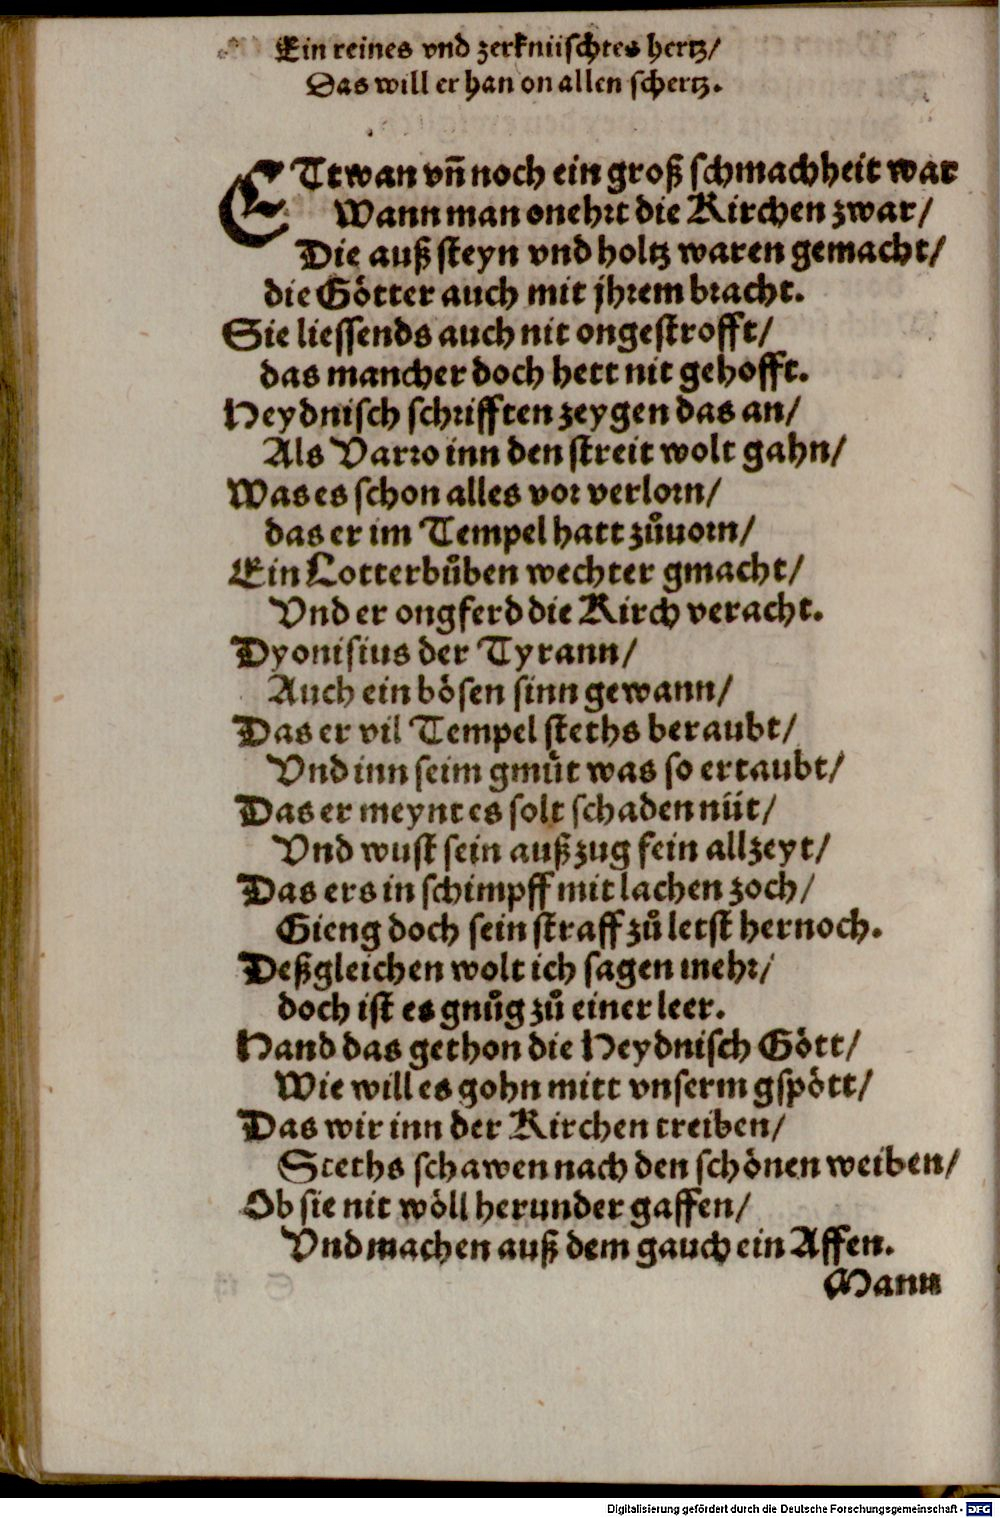 Ein reines vnd zerknüschtes hertz/
Das will er han on allen schertz.
ETtwan vn̄ noch ein groß schmachheit war
Wann man onehrt die Kirchen zwar/
Die auß steyn vnd holtz waren gemacht/
die Götter auch mit jhrem bracht.
Sie liessends auch nit ongestrofft/
das mancher doch hett nit gehofft.
Heydnisch schrifften zeygen das an/
Als Varro inn den streit wolt gahn/
Was es schon alles vor verlorn/
das er im Tempel hatt zůuorn/
Ein Lotterbůben wechter gmacht/
Vnd er ongferd die Kirch veracht.
Dyonisius der Tyrann/
Auch ein bösen sinn gewann/
Das er vil Tempel steths beraubt/
Vnd inn seim gmüt was so ertaubt/
Das er meynt es solt schaden nüt/
Vnd wust sein außzug fein allzeyt/
Das ers in schimpff mit lachen zoch/
Gieng doch sein straff zů letst hernoch.
Deßgleichen wolt ich sagen mehr/
doch ist es gnůg zů einer leer.
Hand das gethon die Heydnisch Gött/
Wie will es gohn mitt vnserm gspött/
Das wir inn der Kirchen treiben/
Steths schawen nach den schönen weiben/
Ob sie nit wöll herunder gaffen/
Vnd machen auß dem gauch ein Affen.
Mann
Digitalisierung gefördert durch die Deutsche Forschungsgemeinschaft - DFG